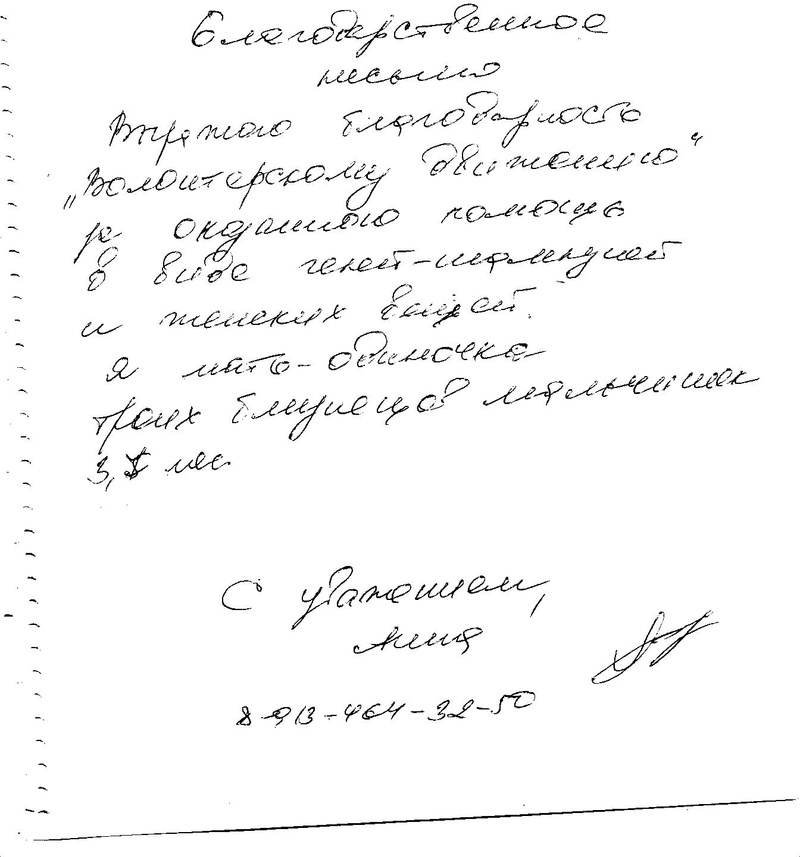 Благодарственное
письмо
Выражаю благодарность
"Волонтерскому движению"
за оказанную помощь
в виде
и женских вещей.
Я мать-одиночка
троих близнецов мальчишек
3,5 мес
С уважением,
Анна
8-913-464-32-50